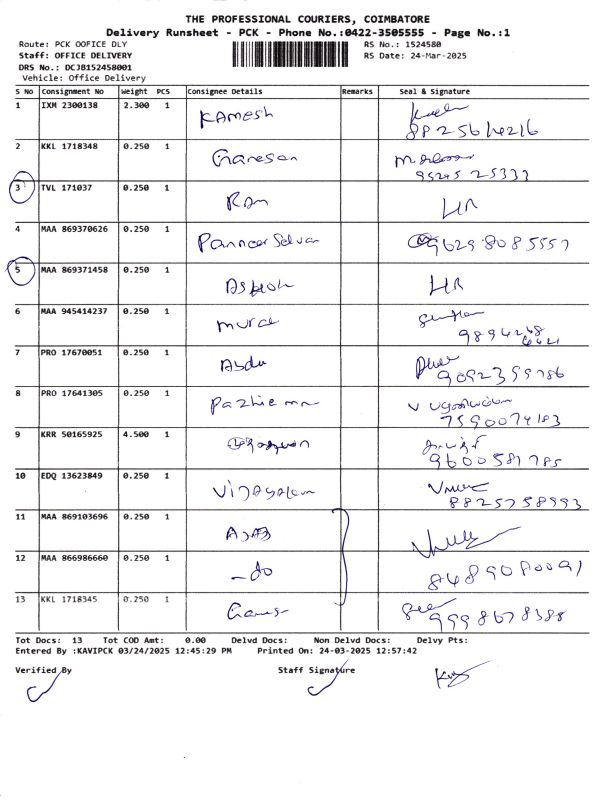 THE PROFESSIONAL COURIERS, COIMBATORE
Delivery Runsheet - PCK - Phone No.:0422-3505555 - Page No.:1
Route: PCK OOFICE DLY RS No.: 1524580
Staff: OFFICE DELIVERY RS Date: 24-Mar-2025
DRS No.: DCJB152458001
Vehicle: Office Delivery
S No Consignment No Weight PCS Consignee Details Remarks Seal & Signature
1 IXM 2300138 2.300 1 KAmesh
2 KKL 1718348 0.250 1 Ganesan
95245 25333
3 TVL 171037 0.250 1 Ram LR
4 MAA 869370626 0.250 1 Panneer Selvan 96298085557
5 MAA 869371458 0.250 1 LR
6 MAA 945414237 0.250 1
7 PRO 17670051 0.250 1 Abdu
9092399786
8 PRO 17641305 0.250 1
7590074183
9 KRR 50165925 4.500 1
9600581785
10 EDQ 13623849 0.250 1
8825758993
11 MAA 869103696 0.250 1
12 MAA 866986660 0.250 1 -do 8489080091
13 KKL 1718345 0.250 1
9998678388
Tot Docs: 13 Tot COD Amt: 0.00 Delvd Docs: Non Delvd Docs: Delvy Pts:
Entered By :KAVIPCK 03/24/2025 12:45:29 PM Printed On: 24-03-2025 12:57:42
Verified By Staff Signature